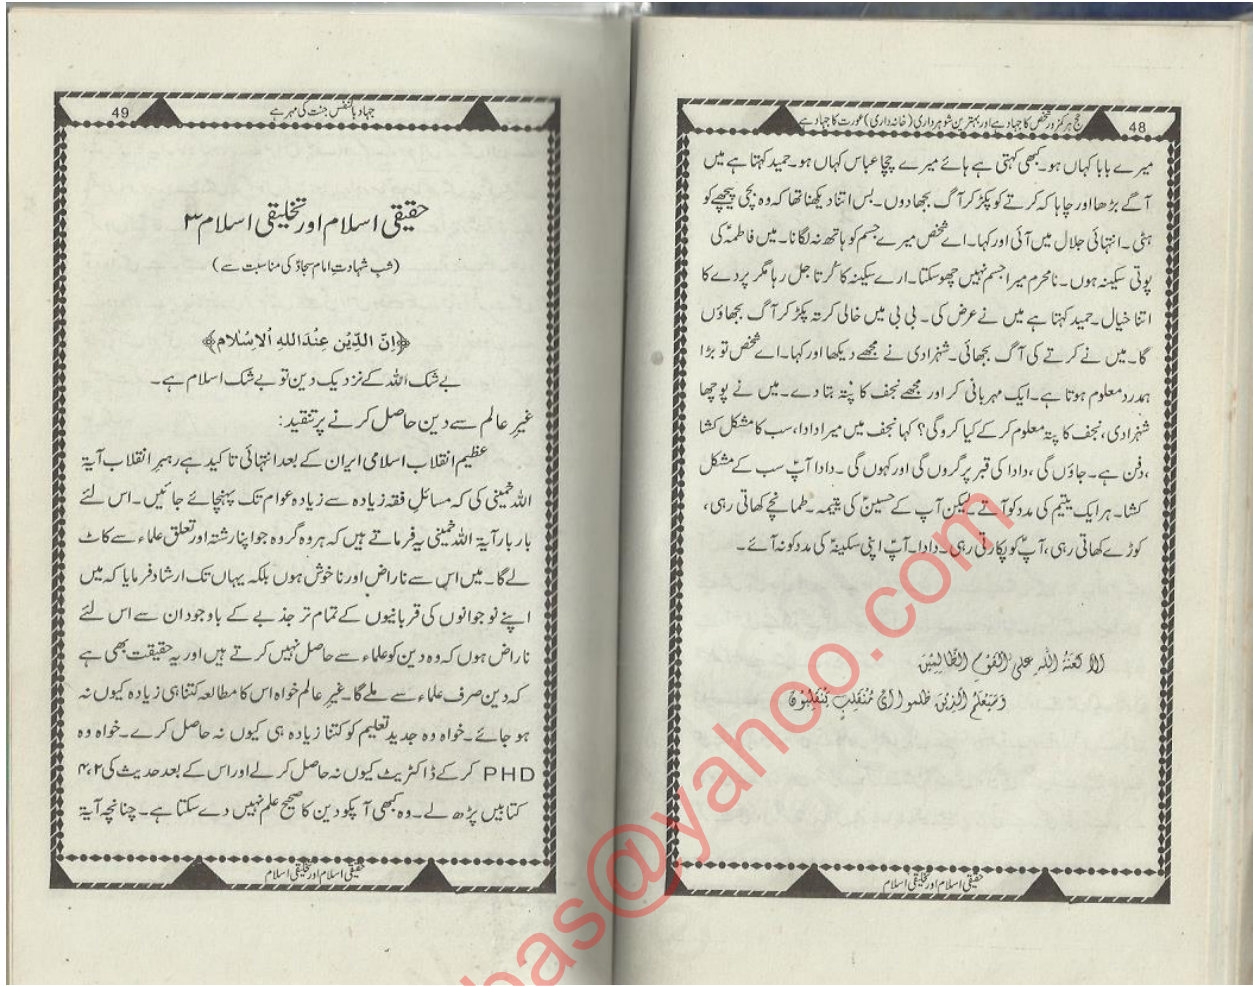 حج ہر کمزور شخص کا جہاد ہے اور بہترین شوہرداری (خانہ داری) عورت کا جہاد ہے
48
میرے بابا کہاں ہو۔ کبھی کہتی ہے ہائے میرے چچا عباس کہاں ہو۔ حمید کہتا ہے میں
آگے بڑھا اور چاہا کہ کرتے کو پکڑ کر آگ بجھا دوں۔ بس اتنا دیکھنا تھا کہ وہ بچی پیچھے کو
ہٹی۔ انتہائی جلال میں آئی اور کہا۔ اے شخص میرے جسم کو ہاتھ نہ لگانا۔ میں فاطمہؑ کی
پوتی سکینہ ہوں۔ نامحرم میرا جسم نہیں چھو سکتا۔ ارے سکینہ کا کُرتا جل رہا مگر پردے کا
اتنا خیال۔ حمید کہتا ہے میں نے عرض کی۔ بی بی میں خالی کرتہ پکڑ کر آگ بجھاؤں
گا۔ میں نے کرتے کی آگ بجھائی۔ شہزادی نے مجھے دیکھا اور کہا۔ اے شخص تو بڑا
ہمدرد معلوم ہوتا ہے۔ ایک مہربانی کر اور مجھے نجف کا پتہ بتا دے۔ میں نے پوچھا
شہزادی، نجف کا پتہ معلوم کر کے کیا کرو گی؟ کہا نجف میں میرا دادا، سب کا مشکل کشا
،دفن ہے۔ جاؤں گی، دادا کی قبر پر گروں گی اور کہوں گی۔ دادا آپؑ سب کے مشکل
کشا۔ ہر ایک یتیم کی مدد کو آتے۔ لیکن آپ کے حسینؑ کی یتیمہ۔ طمانچے کھاتی رہی،
کوڑے کھاتی رہی، آپؑ کو پکارتی رہی۔ دادا۔ آپؑ اپنی سکینہؑ کی مدد کو نہ آئے۔
الا لعنة الله علی القوم الظالمین
وسیعلم الذین ظلموا ای منقلب ینقلبون
حقیقی اسلام اور تخلیقی اسلام
جہاد بالنفس جنت کی مہر ہے
49
حقیقی اسلام اور تخلیقی اسلام ۳
(شب شہادتِ امام سجادؑ کی مناسبت سے)
﴿اِنّ الدِّیْن عِنْدَاللهِ اْلاِسْلَام﴾
بے شک اللہ کے نزدیک دین تو بے شک اسلام ہے۔
غیرِ عالم سے دین حاصل کرنے پر تنقید:
عظیم انقلاب اسلامی ایران کے بعد انتہائی تاکید ہے رہبرِ انقلاب آیۃ
اللہ خمینی کی کہ مسائلِ فقہ زیادہ سے زیادہ عوام تک پہنچائے جائیں۔ اس لئے
بار بار آیۃ اللہ خمینی یہ فرماتے ہیں کہ ہر وہ گروہ جو اپنا رشتہ اور تعلق علماء سے کاٹ
لے گا۔ میں اس سے ناراض اور ناخوش ہوں بلکہ یہاں تک ارشاد فرمایا کہ میں
اپنے نوجوانوں کی قربانیوں کے تمام تر جذبے کے باوجود ان سے اس لئے
ناراض ہوں کہ وہ دین کو علماء سے حاصل نہیں کرتے ہیں اور یہ حقیقت بھی ہے
کہ دین صرف علماء سے ملے گا۔ غیرِ عالم خواہ اس کا مطالعہ کتنا ہی زیادہ کیوں نہ
ہو جائے۔ خواہ وہ جدید تعلیم کو کتنا زیادہ ہی کیوں نہ حاصل کرے۔ خواہ وہ
PHD کر کے ڈاکٹریٹ کیوں نہ حاصل کر لے اور اس کے بعد حدیث کی ۴،۲
کتابیں پڑھ لے۔ وہ کبھی آپکو دین کا صحیح علم نہیں دے سکتا ہے۔ چنانچہ آیۃ
حقیقی اسلام اور تخلیقی اسلام
bas@yahoo.com